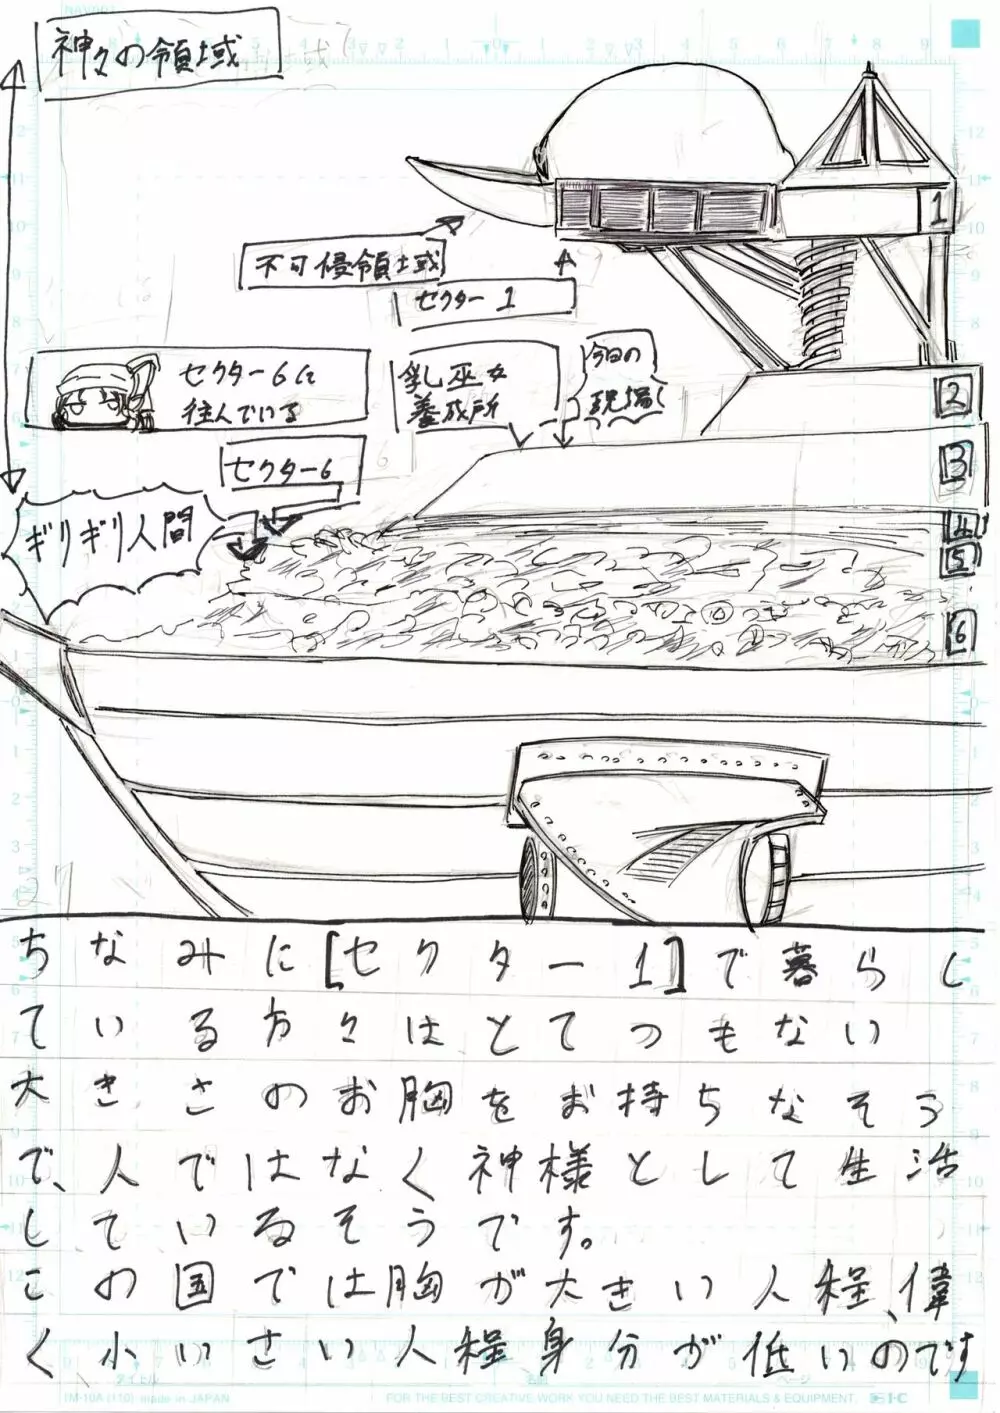 神々の領域
1
不可侵領域
セクター1
セクター6に
住んでいる
乳巫女
養成所
今日の
現場
2
セクター6
3
ギリギリ人間
4
5
6
ちなみに[セクター1]で暮らし
ている方々はとてつもない
大きさのお胸をお持ちなそう
で、人ではなく神様として生活
しているそうです。
この国では胸が大きい人程、偉
く小いさい人程身分が低いのです
タイトル
ページ
IM-10A (110) made in JAPAN
FOR THE BEST CREATIVE WORK YOU NEED THE BEST MATERIALS & EQUIPMENT.
I-C